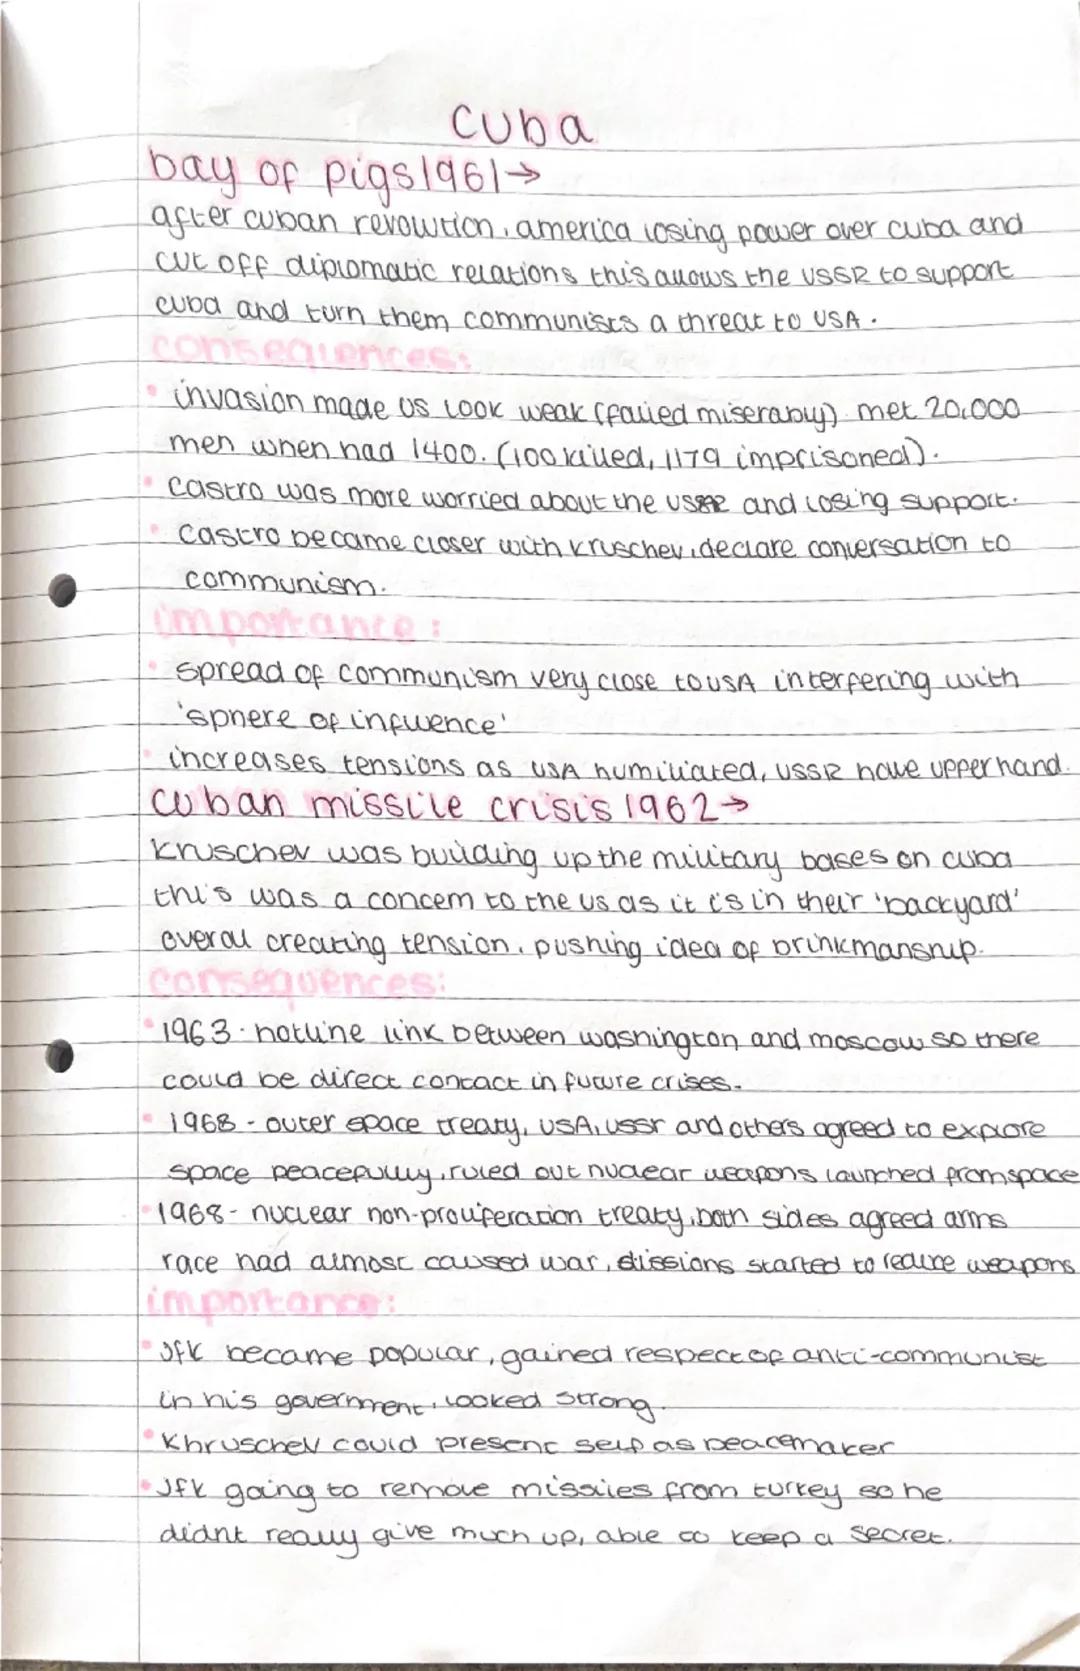 cuba
bay of pigs 1961→
after cuban revolution, america losing power over cuba and
cut off diplomatic relations this allows the USSR to support
cuba and turn them communists a threat to USA.
consequences:
• invasion made us look weak (failed miserably) met 20,000
men when had 1400. (100 killed, 1179 imprisoned).
• castro was more worried about the and losing support.
• castro became closer with kruschev, declare conversation to
communism.
importance:
• spread of communism very close to USA interfering with
'sphere of influence'
• increases tensions as USA humiliated, USSR have upperhand.
cuban missile crisis 1962→
kruschev was building up the military bases on cuba
this was a concern to the us as it is in their 'backyard'
overal creating tension, pushing idea of brinkmanship.
consequences:
• 1963 - hotline link between washington and moscow so there
could be direct contact in future crises.
• 1968 - outer space treaty, USA, ussr and others agreed to explore
space peacefully, ruled out nuclear weapons launched from space
• 1968 - nuclear non-proliferation treaty, both sides agreed arms
race had almost caused war, started to reduce weapons
importance:
• Jfk became popular, gained respect of anti-communist
in his government, looked strong.
• Khruschev could present self as peacemaker
• Jfk going to remove missiles from turkey so he
didnt really give much up, able to keep a secret.